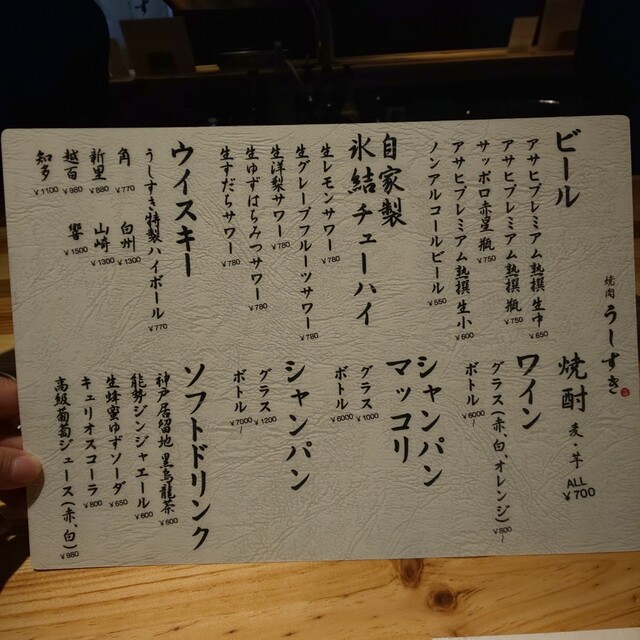 焼肉 うしすき
ビール
アサヒプレミアム熟撰 生中 ¥650
アサヒプレミアム熟撰 瓶 ¥750
サッポロ赤星 瓶 ¥750
アサヒプレミアム熟撰 生小 ¥600
ノンアルコールビール ¥550
自家製
氷結チューハイ
生レモンサワー ¥780
生グレープフルーツサワー ¥780
生洋梨サワー ¥780
生ゆずはちみつサワー ¥780
生すだちサワー ¥780
ウイスキー
うしすき特製ハイボール ¥770
角 ¥770
白州 ¥1300
新里 ¥880
山崎 ¥1300
越百 ¥980
響 ¥1500
知多 ¥1100
焼酎 麦・芋 ALL ¥700
ワイン
グラス(赤、白、オレンジ) ¥800/
ボトル ¥6000/
シャンパン
マッコリ
グラス ¥1000
ボトル ¥6000
シャンパン
グラス ¥1200
ボトル ¥7000/
ソフトドリンク
神戸居留地 黒烏龍茶 ¥600
能勢ジンジャエール ¥600
生蜂蜜ゆずソーダ ¥650
キュリオスコーラ ¥800
高級葡萄ジュース(赤、白) ¥980